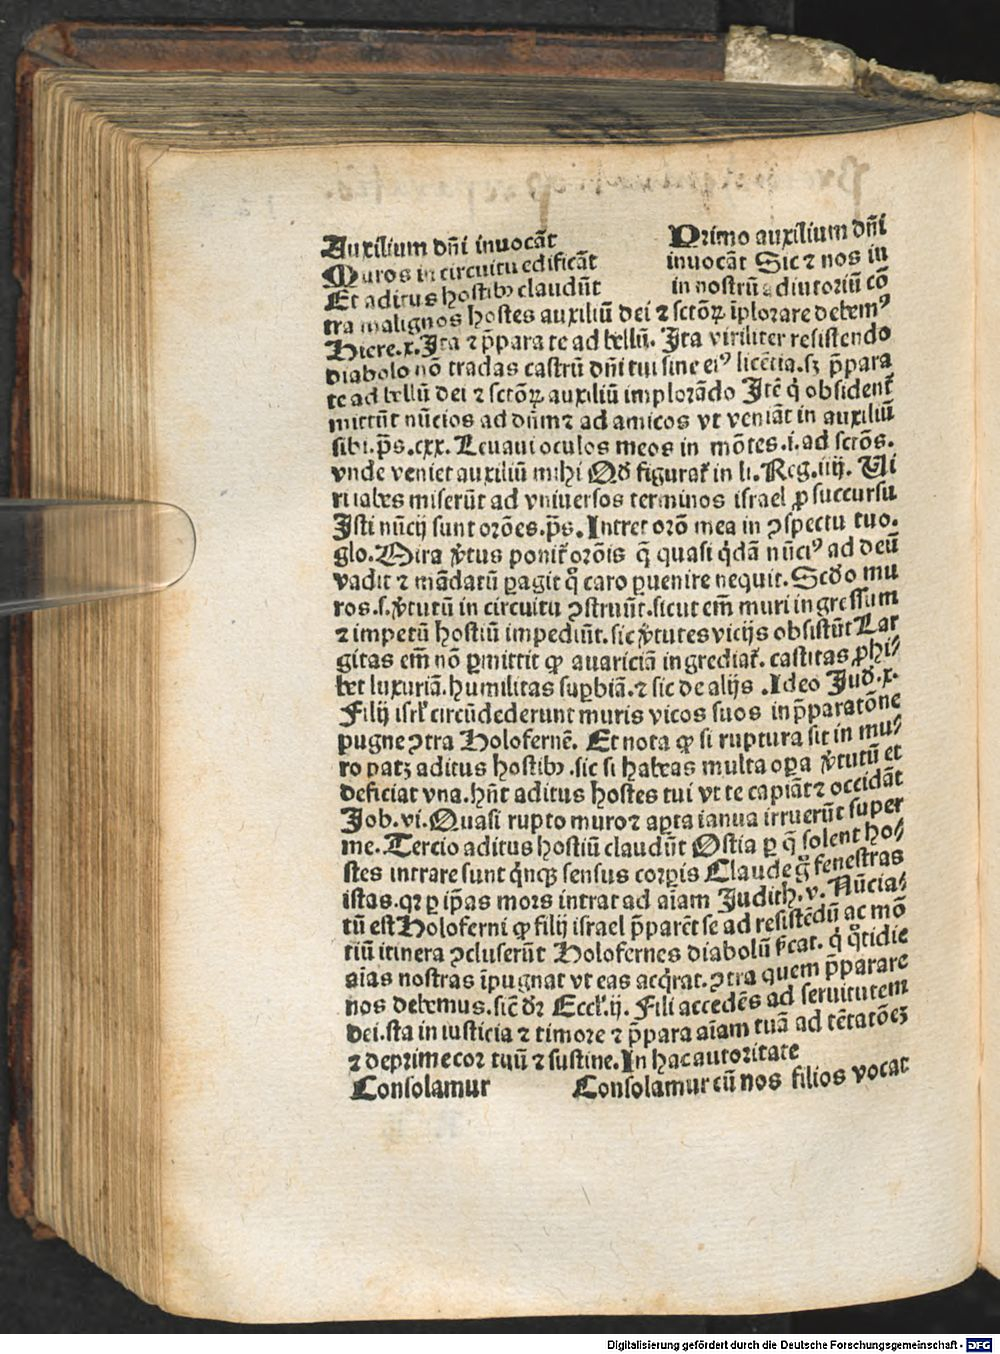 Auxilium dñi inuocãt Primo auxilium dñi
Muros in circuitu edificãt inuocãt Sic ⁊ nos in
Et aditus hostibꝫ claudũt in nostrũ adiutoriũ cõ
tra malignos hostes auxiliũ dei ⁊ sctõꝝ ĩplorare debemꝰ
Hiere.x. Ita ⁊ p̃para te ad bellũ. Ita viriliter resistendo
diabolo nõ tradas castrũ dñi tui sine eiꝰ licẽtia.sꝫ p̃para
te ad bellũ dei ⁊ sctõꝝ auxiliũ implorãdo Itẽ q̇ obsident̃
mittũt nũcios ad dñm ⁊ ad amicos vt veniãt in auxiliũ
sibi.p̃s.cxx. Leuaui oculos meos in mõtes.i.ad sctõs.
vnde veniet auxiliũ mihi Qd̃ figurat̃ in li. Reg.iiij. Vi
ri iabes miserũt ad vniuersos terminos israel ꝓ succursu
Isti nũcij sunt orões.p̃s. Intret orõ mea in ꝯspectu tuo.
glo. Mira v̓tus ponit̃ orõis q̃ quasi q̇dã nũciꝰ ad deũ
vadit ⁊ mãdatũ ꝑagit q̊ caro ꝑuenire nequit. Scd̃o mu
ros.s.v̓tutũ in circuitu ꝯstruũt.sicut em̃ muri ingressum
⁊ impetũ hostiũ impediũt.sic v̓tutes vicijs obsistũt Lar
gitas em̃ nõ ꝑmittit ꝙ auariciã ingrediat̃. castitas ꝓhi⸗
bet luxuriã.humilitas suꝑbiã.⁊ sic de alijs .Ideo Jud̃.x.
Filij isrl̃ circũdederunt muris vicos suos in p̃paratõne
pugne ꝯtra Holofernẽ. Et nota ꝙ si ruptura sit in mu⸗
ro patꝫ aditus hostibꝫ .sic si habeas multa oꝑa v̓tutũ et
deficiat vna.hñt aditus hostes tui vt te capiãt ⁊ occidãt
Job.vi. Quasi rupto muro ⁊ aꝑta ianua irruerũt super
me. Tercio aditus hostiũ claudũt Ostia ꝑ q̃ solent ho⸗
stes intrare sunt q̇nqꝫ sensus corꝑis Claude g̊ fenestras
istas.qꝛ ꝑ ip̃as mors intrat ad aĩam Judith.v. Nũcia⸗
tũ est Holoferni ꝙ filij israel p̃parẽt se ad resistẽdũ ac mõ
tiũ itinera ꝯcluserũt Holofernes diabolũ s̃cat. q̇ q̊tidie
aĩas nostras ĩpugnat vt eas acq̇rat.ꝯtra quem p̃parare
nos debemus.sic̃ dꝛ Eccl̃.ij. Fili accedẽs ad seruitutem
dei.sta in iusticia ⁊ timore ⁊ p̃para aĩam tuã ad tẽtatõeꝫ
⁊ deprime cor tuũ ⁊ sustine. In hac autoritate
Consolamur Consolamur cũ nos filios vocat
Digitalisierung gefördert durch die Deutsche Forschungsgemeinschaft - DFG